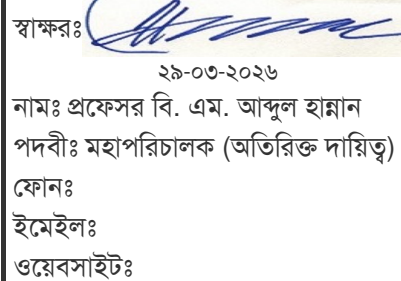 স্বাক্ষরঃ
২৯-০৩-২০২৬
নামঃ প্রফেসর বি. এম. আব্দুল হান্নান
পদবীঃ মহাপরিচালক (অতিরিক্ত দায়িত্ব)
ফোনঃ
ইমেইলঃ
ওয়েবসাইটঃ